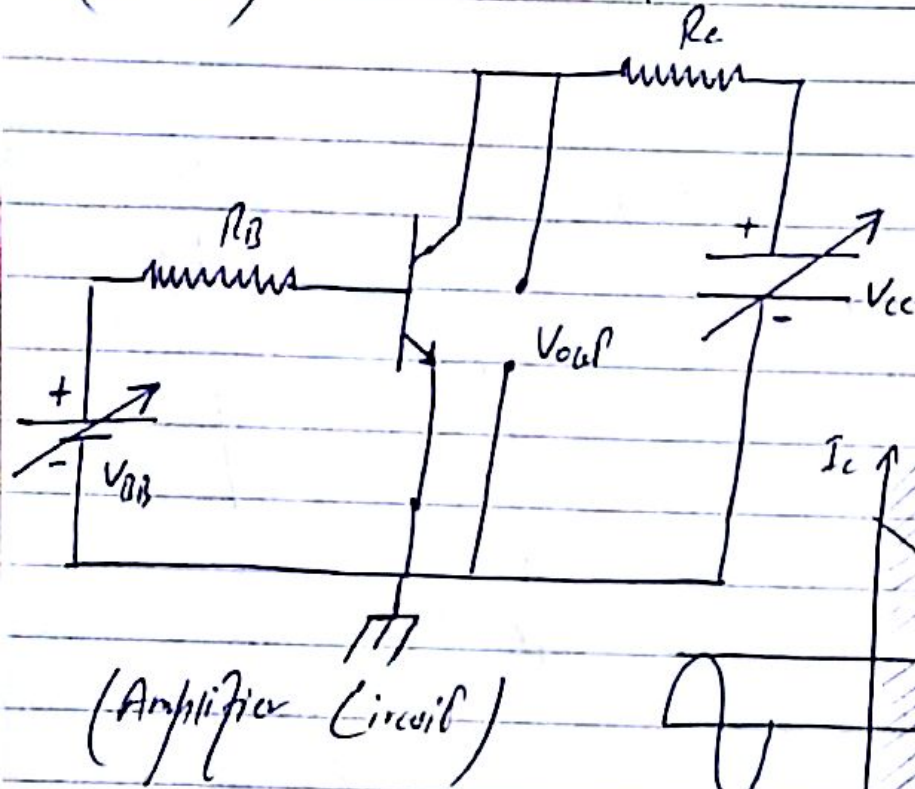 Rc
RB
+
VCC
-
Vout
+
-
VBB
Ic
(Amplifier Circuit)